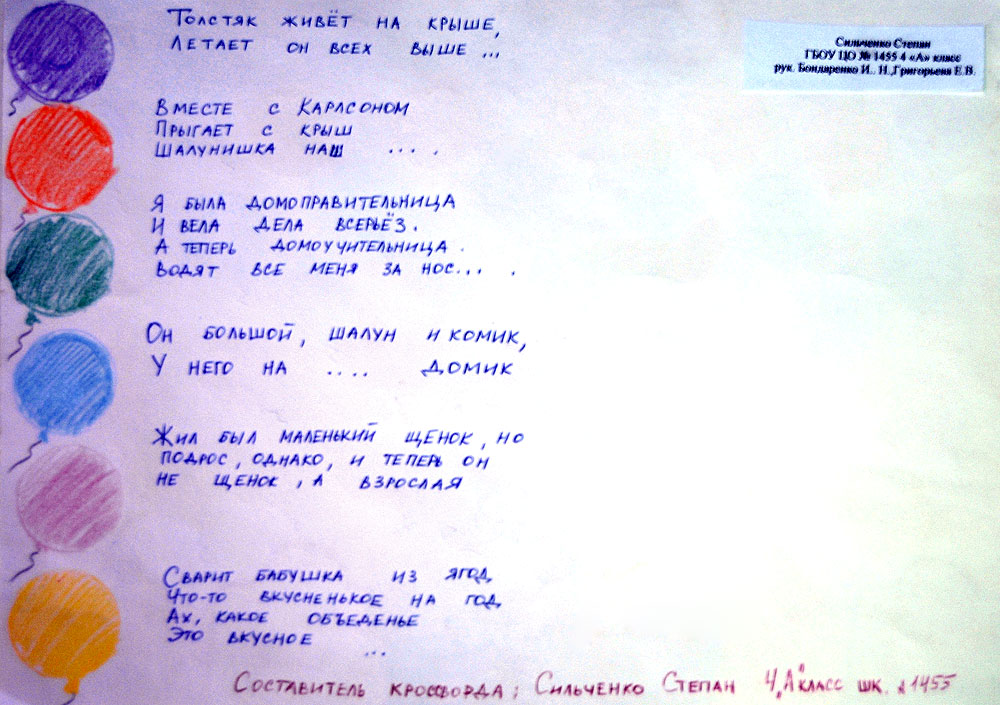 Толстяк живёт на крыше,
Летает он всех выше ...
Сильченко Степан
ГБОУ ЦО № 1455 4 «А» класс
рук. Бондаренко И.. Н.,Григорьева Е.В.
Вместе с Карлсоном
Прыгает с крыш
Шалунишка наш ... .
Я была домоправительница
И вела дела всерьёз.
А теперь домоучительница .
Водят все меня за нос... .
Он большой, шалун и комик,
У него на .... домик
Жил был маленький щенок, но
подрос, однако, и теперь он
не щенок, а взрослая
Сварит бабушка из ягод
Что-то вкусненькое на год
Ах, какое объеденье
Это вкусное
...
Составитель кроссворда; Сильченко Степан 4 „А" класс шк. №1455